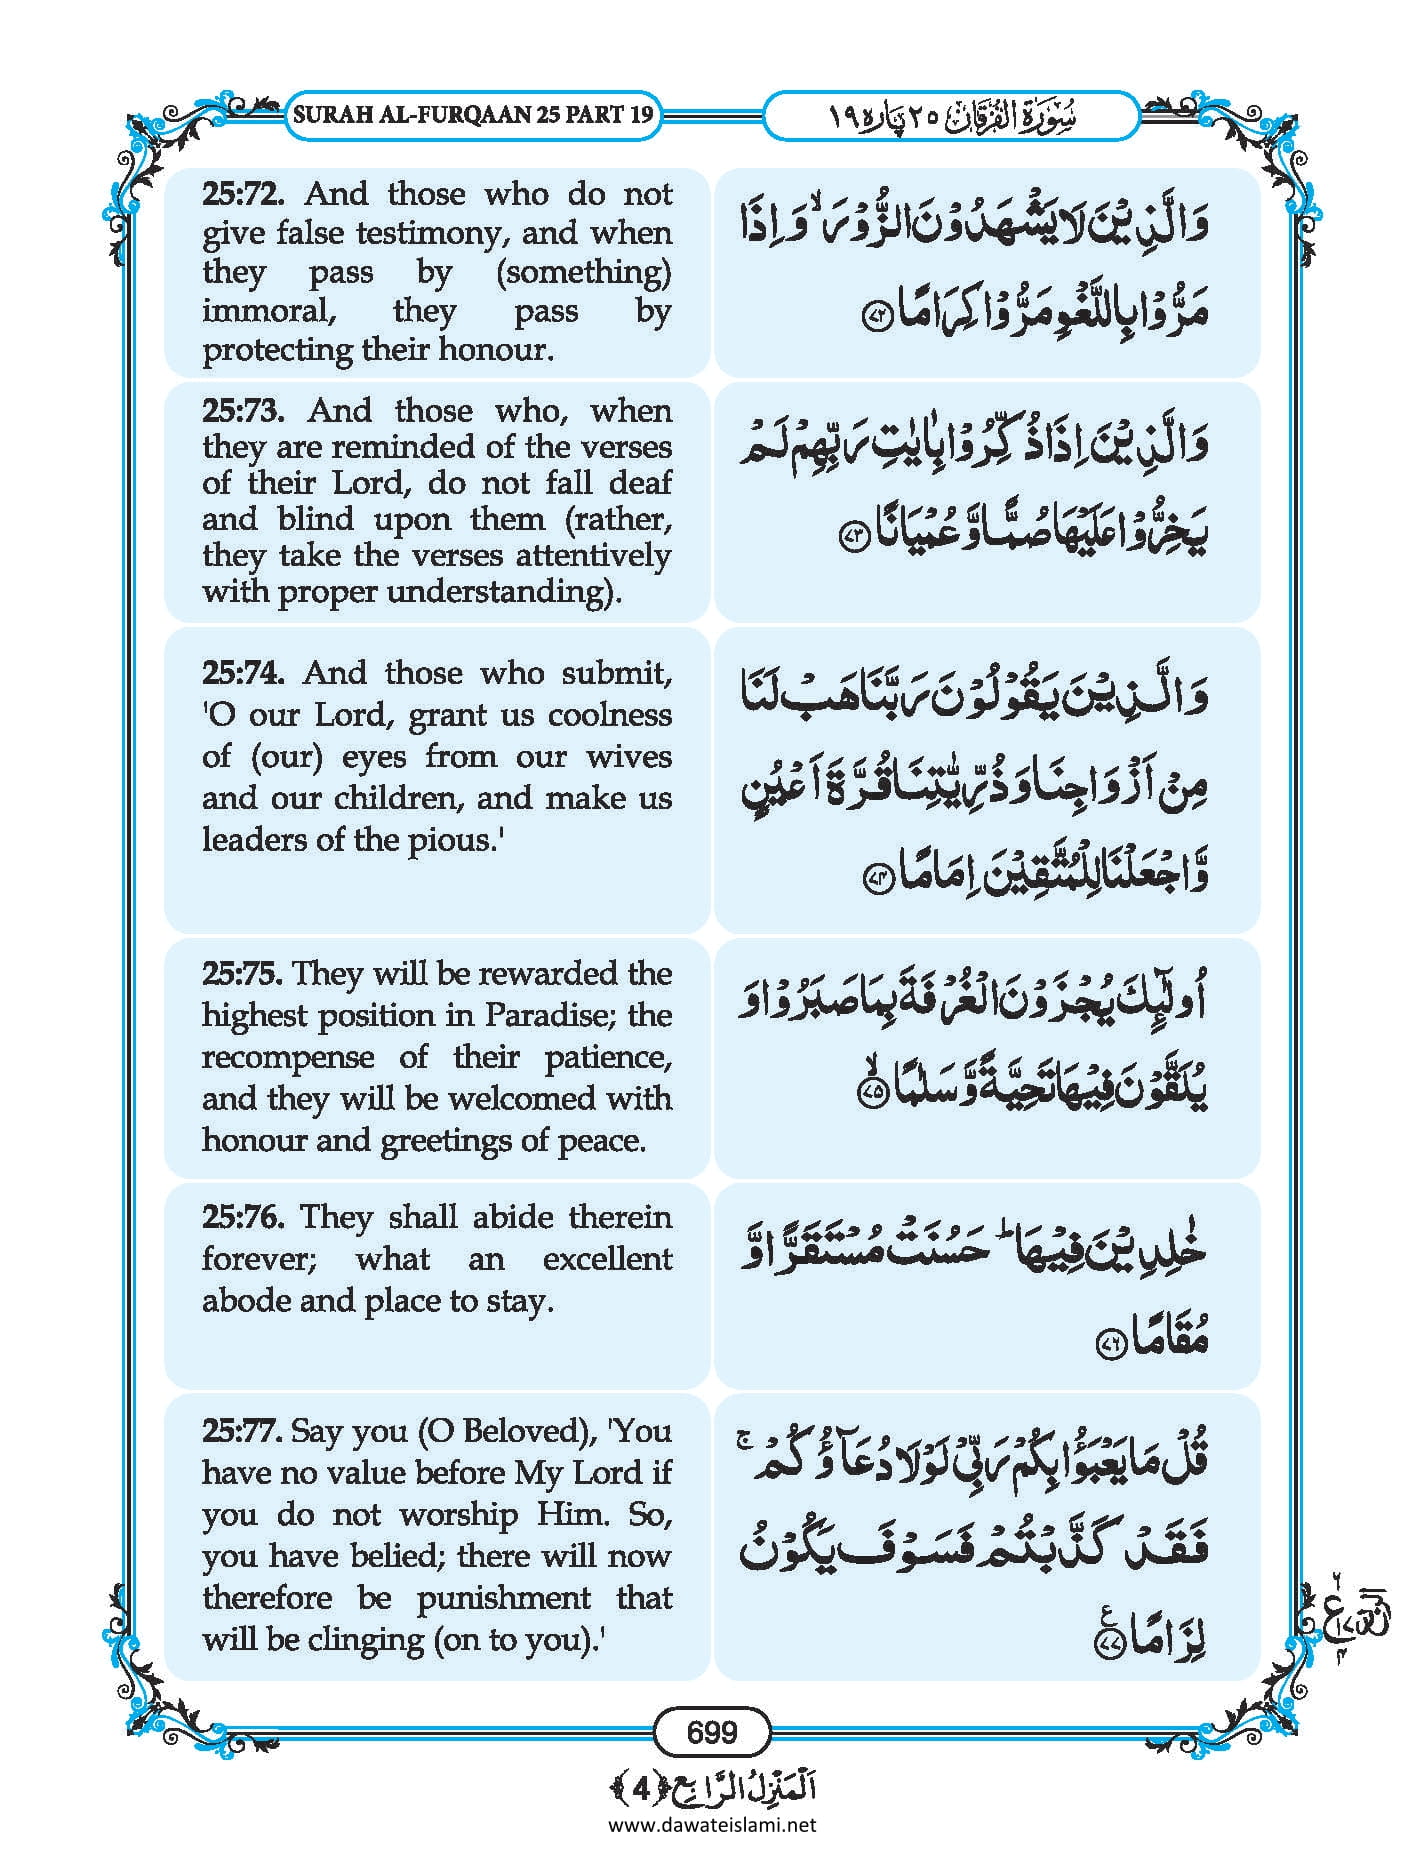 SURAH AL-FURQAAN 25 PART 19
سُوْرَةُ الْفُرْقَانِ ٢٥ پَارہ ١٩
25:72. And those who do not
give false testimony, and when
they pass by (something)
immoral, they pass by
protecting their honour.
وَالَّذِيْنَ لَا يَشْهَدُوْنَ الزُّوْرَ ۙ وَ اِذَا
مَرُّوْا بِاللَّغْوِ مَرُّوْا كِرَامًا ﴿۷۲﴾
25:73. And those who, when
they are reminded of the verses
of their Lord, do not fall deaf
and blind upon them (rather,
they take the verses attentively
with proper understanding).
وَالَّذِيْنَ اِذَا ذُكِّرُوْا بِاٰيٰتِ رَبِّهِمْ لَمْ
يَخِرُّوْا عَلَيْهَا صُمًّا وَّ عُمْيَانًا ﴿۷۳﴾
25:74. And those who submit,
'O our Lord, grant us coolness
of (our) eyes from our wives
and our children, and make us
leaders of the pious.'
وَالَّذِيْنَ يَقُوْلُوْنَ رَبَّنَا هَبْ لَنَا
مِنْ اَزْوَاجِنَا وَ ذُرِّيّٰتِنَا قُرَّةَ اَعْيُنٍ
وَّ اجْعَلْنَا لِلْمُتَّقِيْنَ اِمَامًا ﴿۷۴﴾
25:75. They will be rewarded the
highest position in Paradise; the
recompense of their patience,
and they will be welcomed with
honour and greetings of peace.
اُولٰٓئِكَ يُجْزَوْنَ الْغُرْفَةَ بِمَا صَبَرُوْا وَ
يُلَقَّوْنَ فِيْهَا تَحِيَّةً وَّ سَلٰمًا ﴿۷۵﴾ ۙ
25:76. They shall abide therein
forever; what an excellent
abode and place to stay.
خٰلِدِيْنَ فِيْهَا ؕ حَسُنَتْ مُسْتَقَرًّا وَّ
مُقَامًا ﴿۷۶﴾
25:77. Say you (O Beloved), 'You
have no value before My Lord if
you do not worship Him. So,
you have belied; there will now
therefore be punishment that
will be clinging (on to you).'
قُلْ مَا يَعْبَؤُا بِكُمْ رَبِّيْ لَوْ لَا دُعَآؤُكُمْ ۚ
فَقَدْ كَذَّبْتُمْ فَسَوْفَ يَكُوْنُ
لِزَامًا ﴿۷۷﴾ ع
699
اَلْمَنْزِلُ الرَّابِع ﴿4﴾
www.dawateislami.net